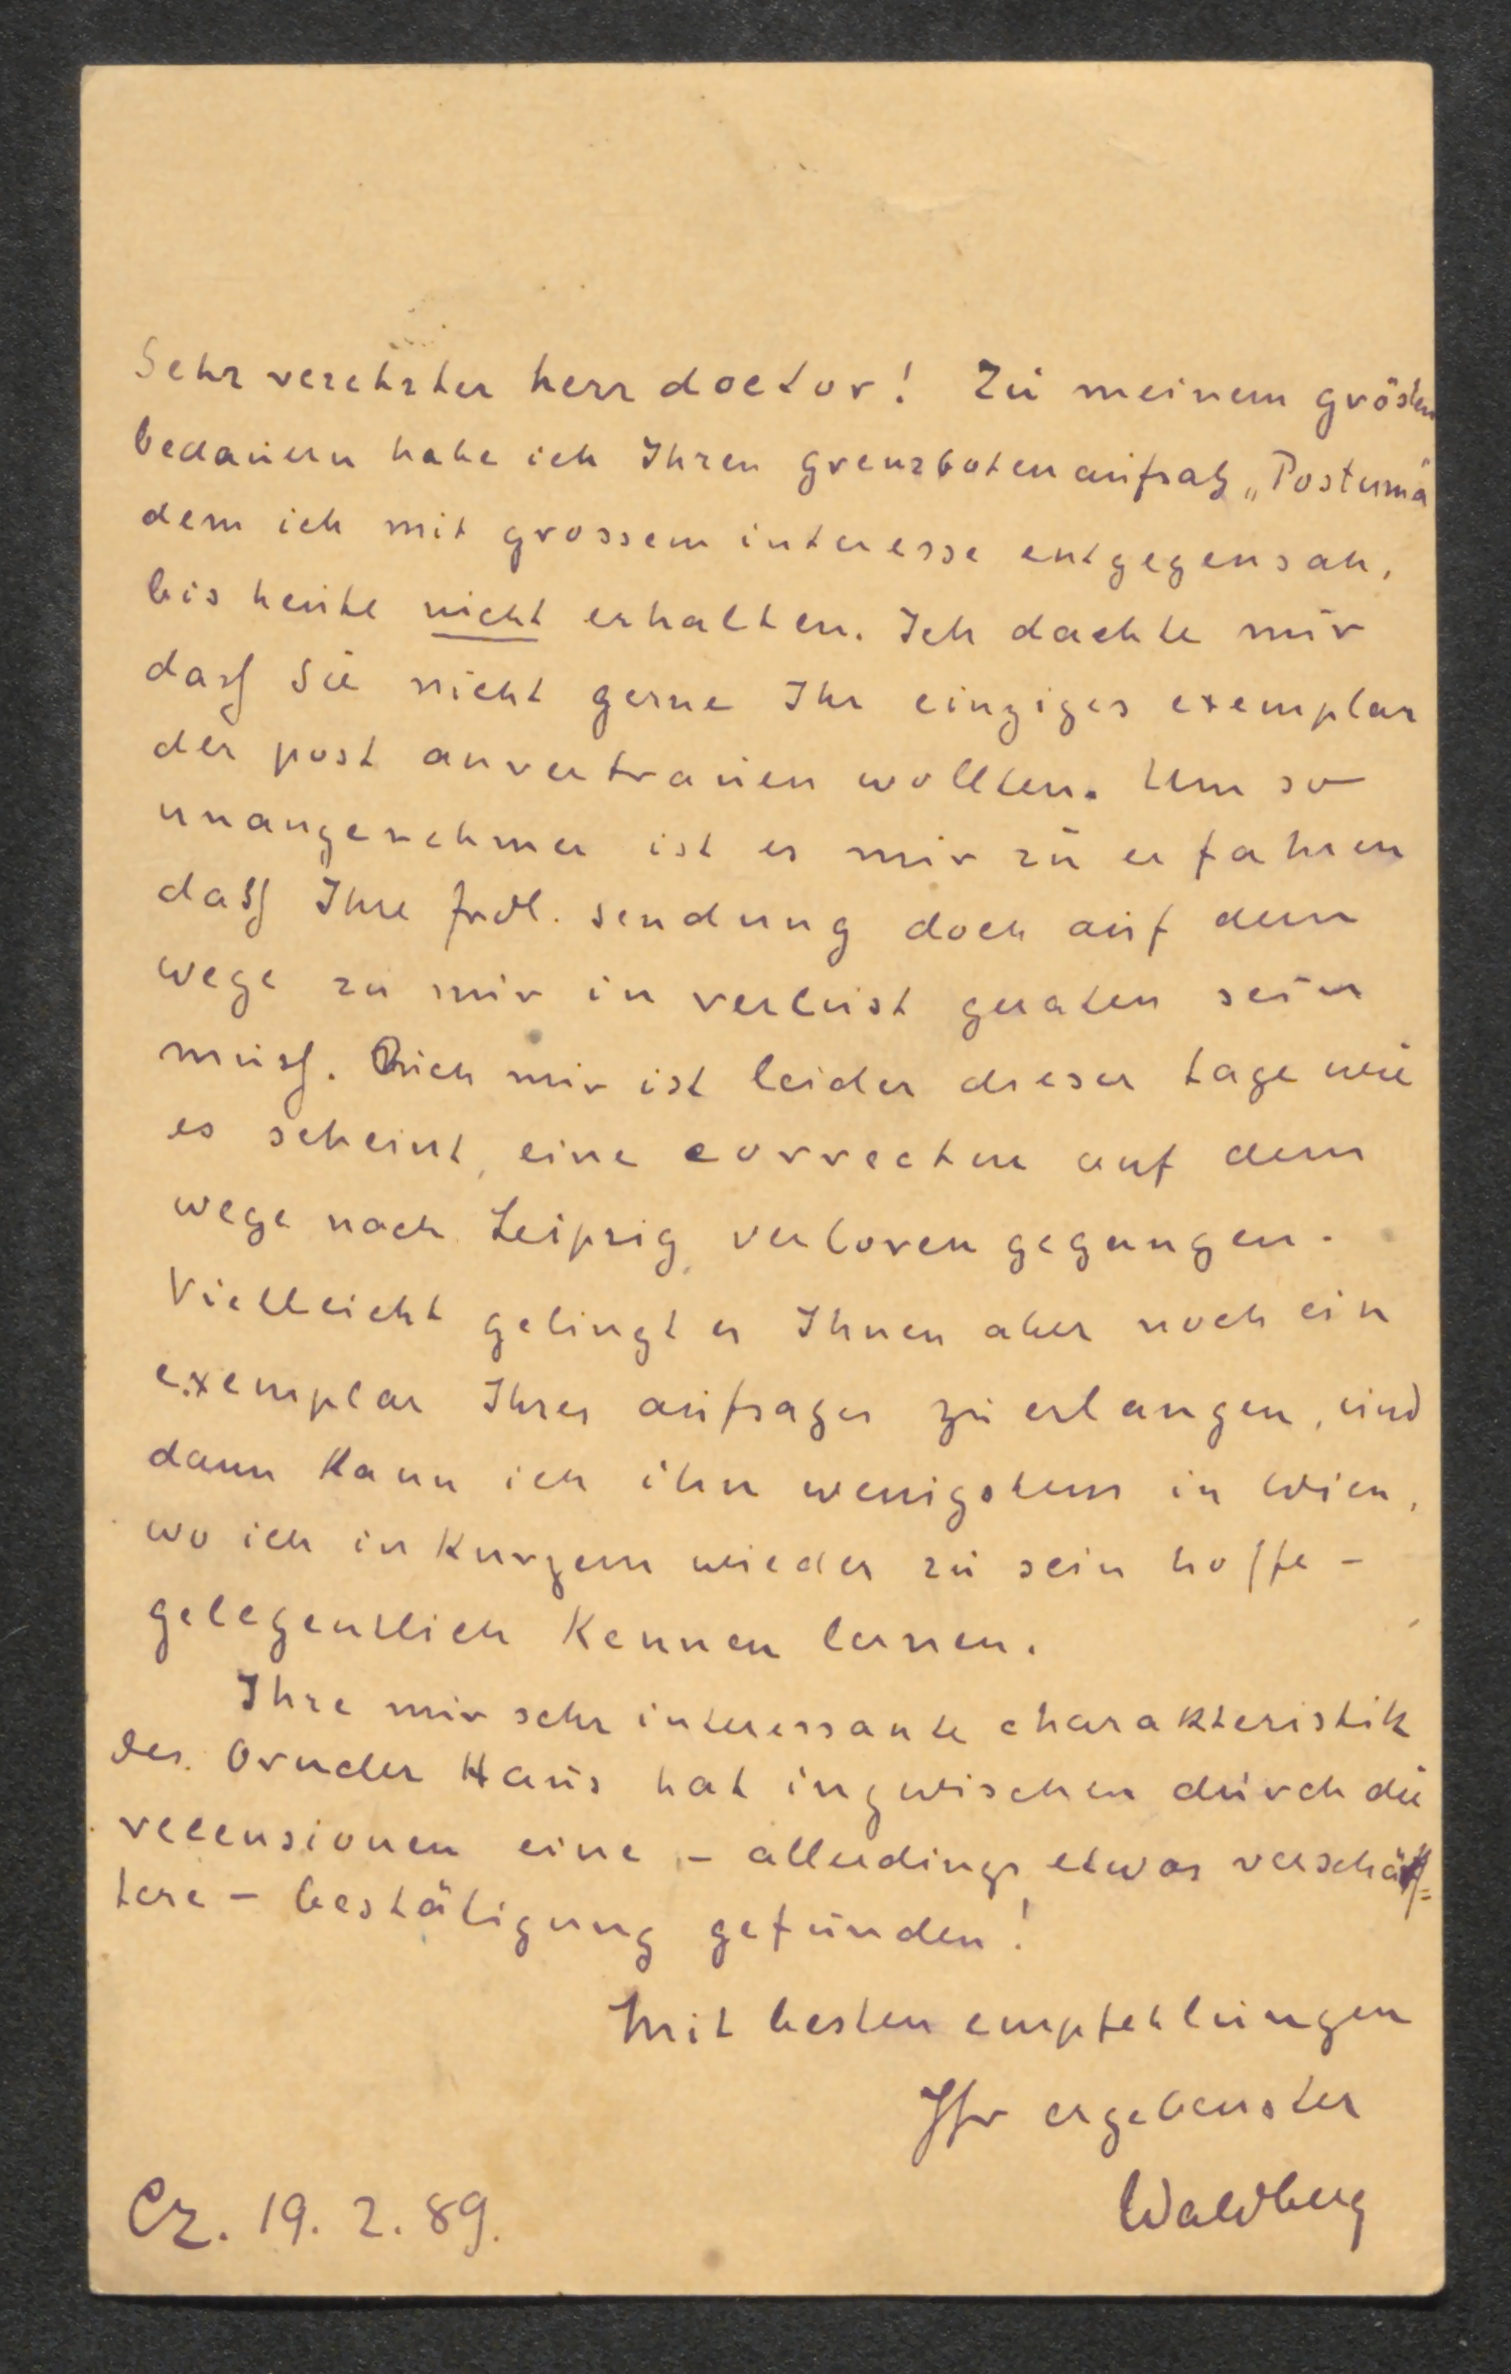 Sehr verehrter herr doctor! Zu meinem grösten
bedauern habe ich Ihren grenzbotenaufsatz „Postuma“
dem ich mit grossem interesse entgegensah,
bis heute nicht erhalten. Ich dachte mir
dass Sie nicht gerne Ihr einziges exemplar
der post anvertrauen wollten. Um so
unangenehmer ist es mir zu erfahren
dass Ihre frdl. sendung doch auf dem
wege zu mir in verlust geraten sein
muss. Auch mir ist leider dieser tage wie
es scheint, eine correctur auf dem
wege nach Leipzig verloren gegangen.
Vielleicht gelingt es Ihnen aber noch ein
exemplar Ihres aufsatzes zu erlangen, und
dann kann ich ihn wenigstens in Wien,
wo ich in Kurzem wieder zu sein hoffe –
gelegentlich Kennen lernen.
Ihre mir sehr interessante charakteristik
des Haus hat inzwischen durch die
recensionen eine – allerdings etwas verschärf=
tere – bestätigung gefunden!
Mit besten empfehlungen
Ihr ergebenster
Waldberg
Cz. 19. 2. 89.